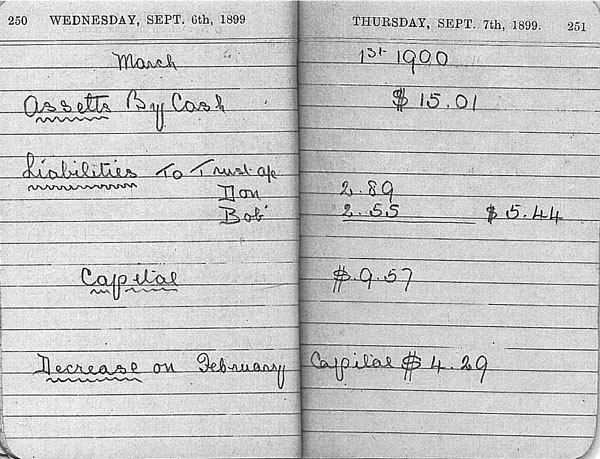 250 WEDNESDAY, SEPT. 6th, 1899
THURSDAY, SEPT. 7th, 1899. 251
March 1st 1900
Assetts By Cash $ 15.01
Liabilities To Trust a/c
Don 2.89
Bob 2.55 $ 5.44
Capital $ 9.57
Decrease on February Capital $ 4.29